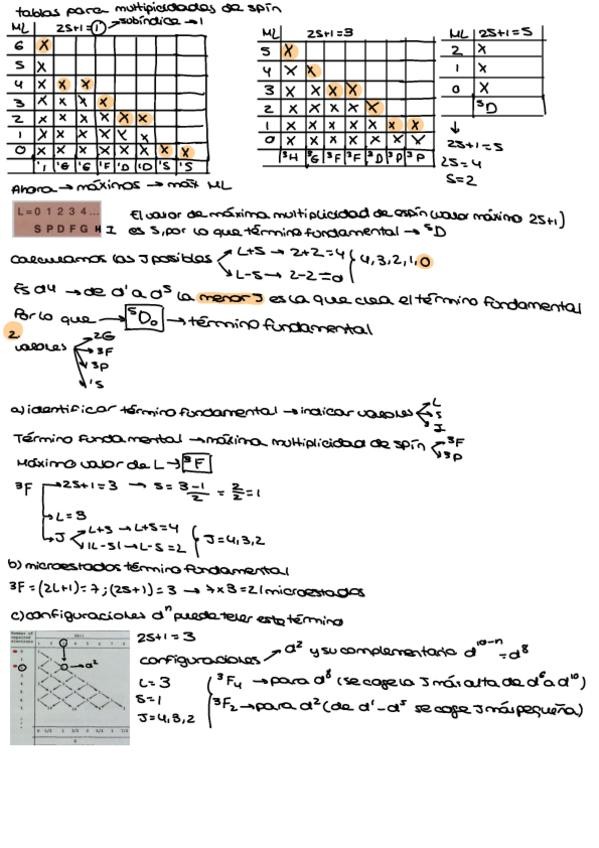 tablas para multiplicidades de spin
ML 2S+1=1 → subíndice → 1
6 X
5 X
4 X X X
3 X X X X
2 X X X X X X
1 X X X X X X
0 X X X X X X X X
¹I ¹G ¹G ¹F ¹D ¹D ¹S ¹S
ML 2S+1=3
5 X
4 X X
3 X X X X
2 X X X X X
1 X X X X X X X
0 X X X X X X X
³H ³G ³F ³F ³D ³P ³P
ML 2S+1=5
2 X
1 X
0 X
⁵D
2S+1=5
2S=4
S=2
Ahora → máximos → max ML
L=0 1 2 3 4...
S P D F G H I
El valor de máxima multiplicidad de espín (valor máximo 2S+1)
es 5, por lo que término fundamental → ⁵D
calculamos las J posibles L+S → 2+2=4 4,3,2,1,0
L-S → 2-2=0
Es d4 → de d¹ a d⁵ la menor J es la que crea el término fundamental
Por lo que → ⁵D₀ → término fundamental
2
valores 2G
³F
³P
¹S
a) identificar término fundamental → indicar valores L
S
J
Término fundamental → máxima multiplicidad de spin ³F
³P
Máximo valor de L → ³F
³F 2S+1=3 → S = 3-1/2 = 2/2 = 1
L=3
J L+S → L+S=4 J=4,3,2
|L-S| → L-S=2
b) microestados término fundamental
³F = (2L+1)=7; (2S+1)=3 → 7x3=21 microestados
c) configuraciones dⁿ pueda tener este término
2S+1=3
configuraciones d² y su complementaria d¹⁰⁻ⁿ = d⁸
→ d²
L=3
S=1
J=4,3,2
³F₄ → para d⁸ (se coge la J más alta de d⁶ a d¹⁰)
³F₂ → para d² (de d¹-d⁵ se coge J más pequeña)